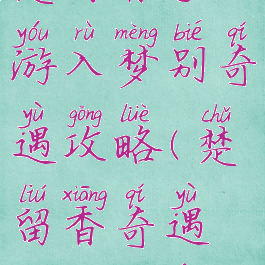 yóu rù mèng bié qí
游入梦别奇
yù gōng lüè chǔ
遇攻略(楚
liú xiāng qí yù
留香奇遇